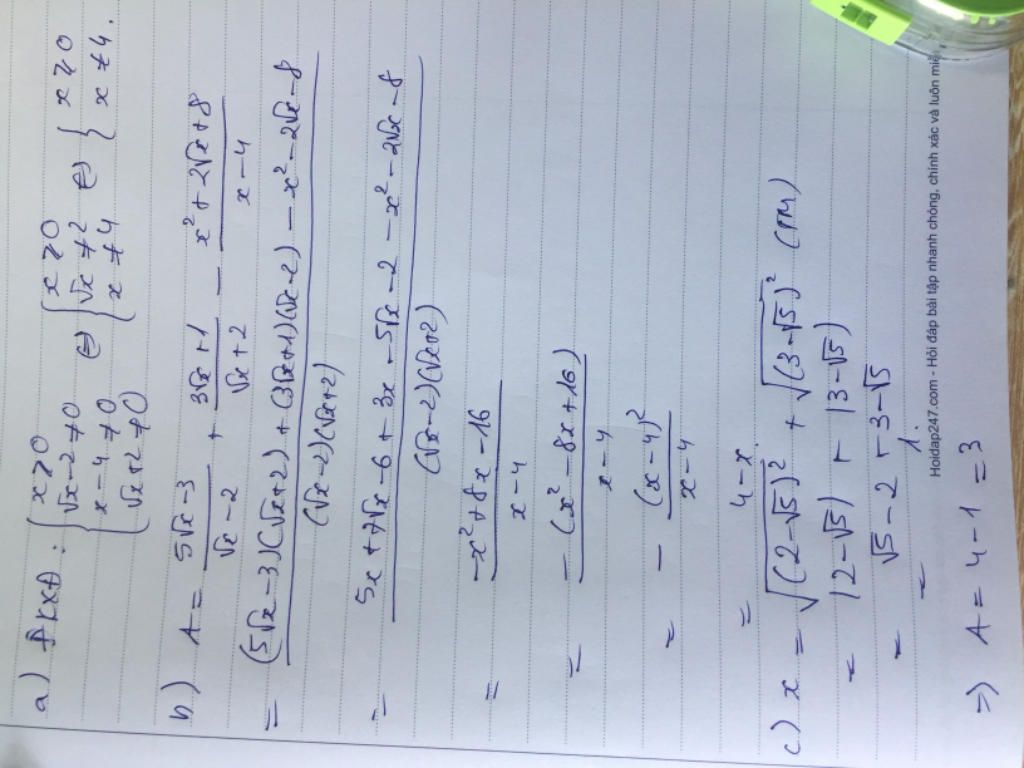 a) ĐKXĐ : { x ≥ 0 √x - 2 ≠ 0 x - 4 ≠ 0 √x + 2 ≠ 0 ⇔ { x ≥ 0 √x ≠ 2 x ≠ 4 ⇔ { x ≥ 0 x ≠ 4.
b) A = (5√x - 3)/(√x - 2) + (3√x + 1)/(√x + 2) - (x² + 2√x + 8)/(x - 4)
= ((5√x - 3)(√x + 2) + (3√x + 1)(√x - 2) - x² - 2√x - 8)/((√x - 2)(√x + 2))
= (5x + 7√x - 6 + 3x - 5√x - 2 - x² - 2√x - 8)/((√x - 2)(√x + 2))
= (-x² + 8x - 16)/(x - 4)
= (-(x² - 8x + 16))/(x - 4)
= - (x - 4)²/(x - 4)
= 4 - x.
c) x = √(2 - √5)² + √(3 - √5)² (TM)
= |2 - √5| + |3 - √5|
= √5 - 2 + 3 - √5
= 1.
⇒ A = 4 - 1 = 3
Hoidap247.com - Hỏi đáp bài tập nhanh chóng, chính xác và luôn miễ